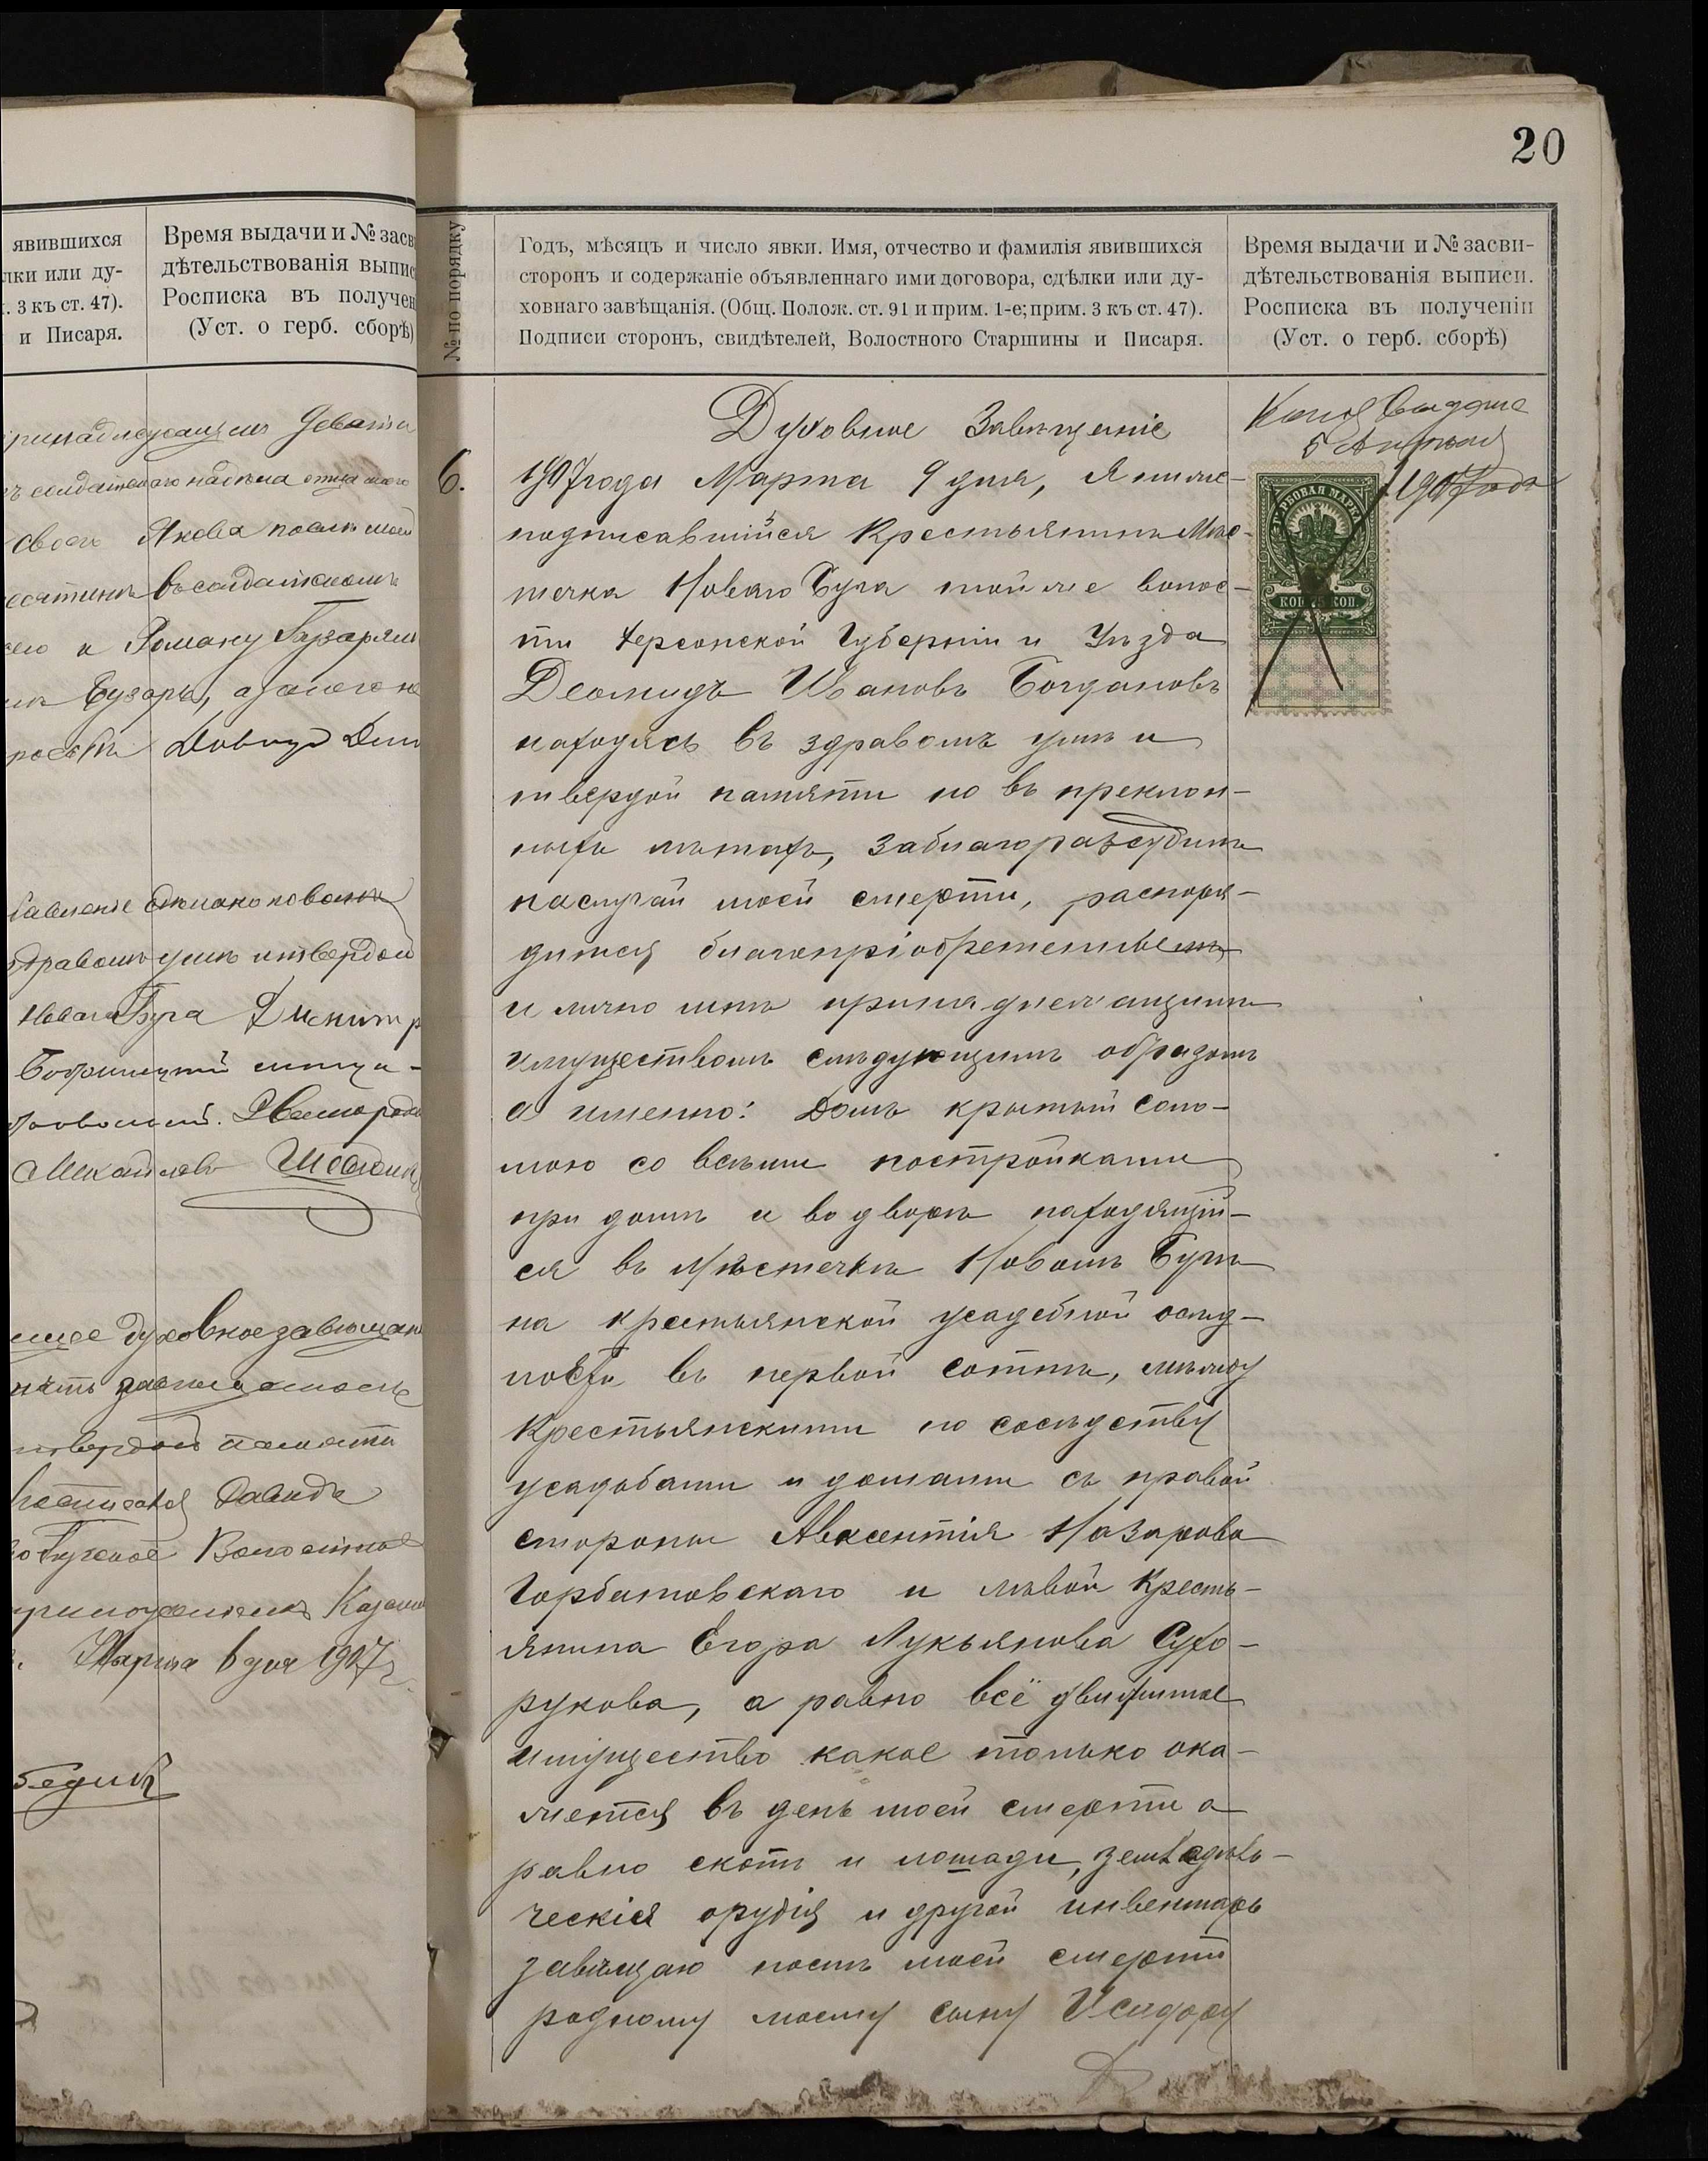 явившихся
лки или ду-
. 3 къ ст. 47).
и Писаря.
Время выдачи и № засв
дѣтельствованія выпис
Росписка въ получен
(Уст. о герб. сборѣ)
Якова
въ солдатскомъ
Роману
Давидъ
здравомъ умѣ и твердой
Новаго Буга
Михайловъ
духовное завѣщан
твердой памяти
Давидъ
Волостное
Марта 6 дня 1907 г.
20
№ по порядку
Годъ, мѣсяцъ и число явки. Имя, отчество и фамилія явившихся
сторонъ и содержаніе объявленнаго ими договора, сдѣлки или ду-
ховнаго завѣщанія. (Общ. Полож. ст. 91 и прим. 1-е; прим. 3 къ ст. 47).
Подписи сторонъ, свидѣтелей, Волостного Старшины и Писаря.
Время выдачи и № засви-
дѣтельствованія выписи.
Росписка въ полученіи
(Уст. о герб. сборѣ)
Духовное Завѣщаніе
6.
1907 года Марта 9 дня, Я ниже-
подписавшійся Крестьянинъ Мѣс-
течка Новаго Буга той же волос-
ти Херсонской Губерніи и Уѣзда
Деомидъ Ивановъ Богдановъ
находясь въ здравомъ умѣ и
твердой памяти но въ преклон-
ныхъ лѣтахъ, заблагоразсудилъ
на случай моей смерти, распоря-
дится благопріобретеннымъ
и лично мнѣ принадлежащимъ
имуществомъ слѣдующимъ образомъ
а именно: Домъ крытый соло-
мою со всѣми постройками
при домѣ и во дворѣ находящій-
ся въ Мѣстечкѣ Новомъ Бугѣ
на крестьянской усадебной осѣд-
лости въ первой сотнѣ, между
Крестьянскими по сосѣдству
усадьбами и домами съ правой
стороны Авксентія Назарова
Горбатовскаго и лѣвой Кресть-
янина Егора Лукьянова Сухо-
рукова, а равно всё движимое
имущество какое только ока-
жется въ день моей смерти а
равно скотъ и лошади, земледѣль-
ческія орудія и другой инвентарь
завѣщаю послѣ моей смерти
родному моему сыну Исидору
Копія выдана
5 Апрѣля
1907 года
ГЕРБОВАЯ МАРКА
КОП. 75 КОП.